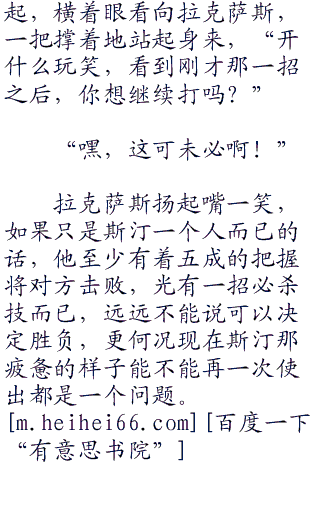 起，横着眼看向拉克萨斯，
一把撑着地站起身来，“开
什么玩笑，看到刚才那一招
之后，你想继续打吗？”
“嘿，这可未必啊！”
拉克萨斯扬起嘴一笑，
如果只是斯汀一个人而已的
话，他至少有着五成的把握
将对方击败，光有一招必杀
技而已，远远不能说可以决
定胜负，更何况现在斯汀那
疲惫的样子能不能再一次使
出都是一个问题。
[m.heihei66.com][百度一下
“有意思书院”]